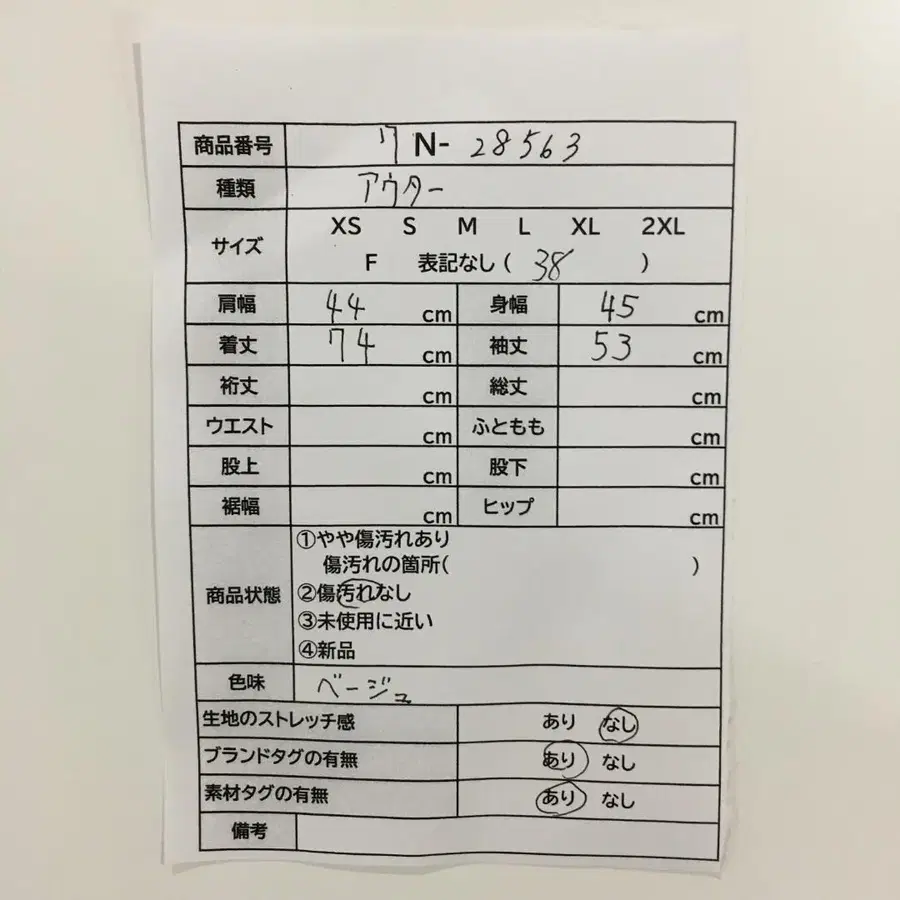 商品番号 ワN- 28563
種類 アウター
サイズ XS S M L XL 2XL
F 表記なし ( 38 )
肩幅 44 cm 身幅 45 cm
着丈 74 cm 袖丈 53 cm
裄丈 cm 総丈 cm
ウエスト cm ふともも cm
股上 cm 股下 cm
裾幅 cm ヒップ cm
商品状態 ①やや傷汚れあり
傷汚れの箇所( )
②傷汚れなし
③未使用に近い
④新品
色味 ベージュ
生地のストレッチ感 あり なし
ブランドタグの有無 あり なし
素材タグの有無 あり なし
備考